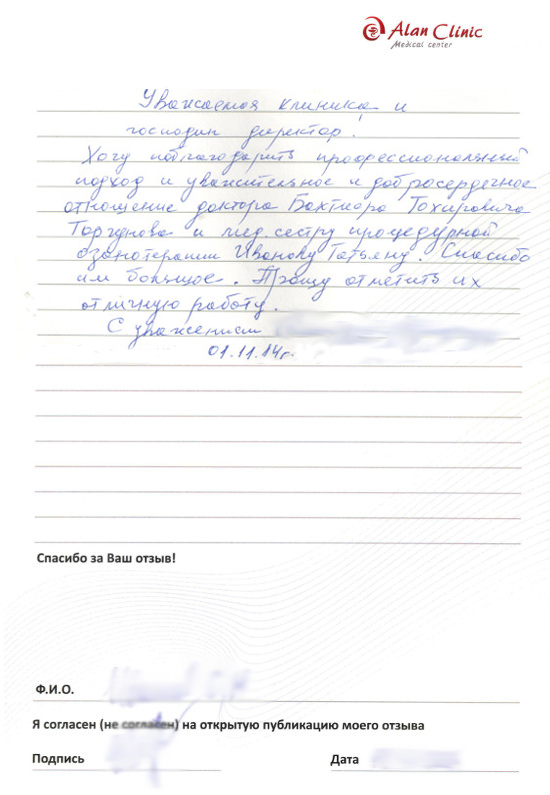 Alan Clinic
Medical center
Уважаемая клиника и
господин директор.
Хочу поблагодарить профессиональный
подход и уважительное и добросердечное
отношение доктора Бахтиора Тохировича
и мед. сестру процедурной
озонотерапии Иванову Татьяну. Спасибо
им большое. Прошу отметить их
отличную работу.
С уважением
01.11.14г.
Спасибо за Ваш отзыв!
Ф.И.О.
Я согласен (не согласен) на открытую публикацию моего отзыва
Подпись
Дата